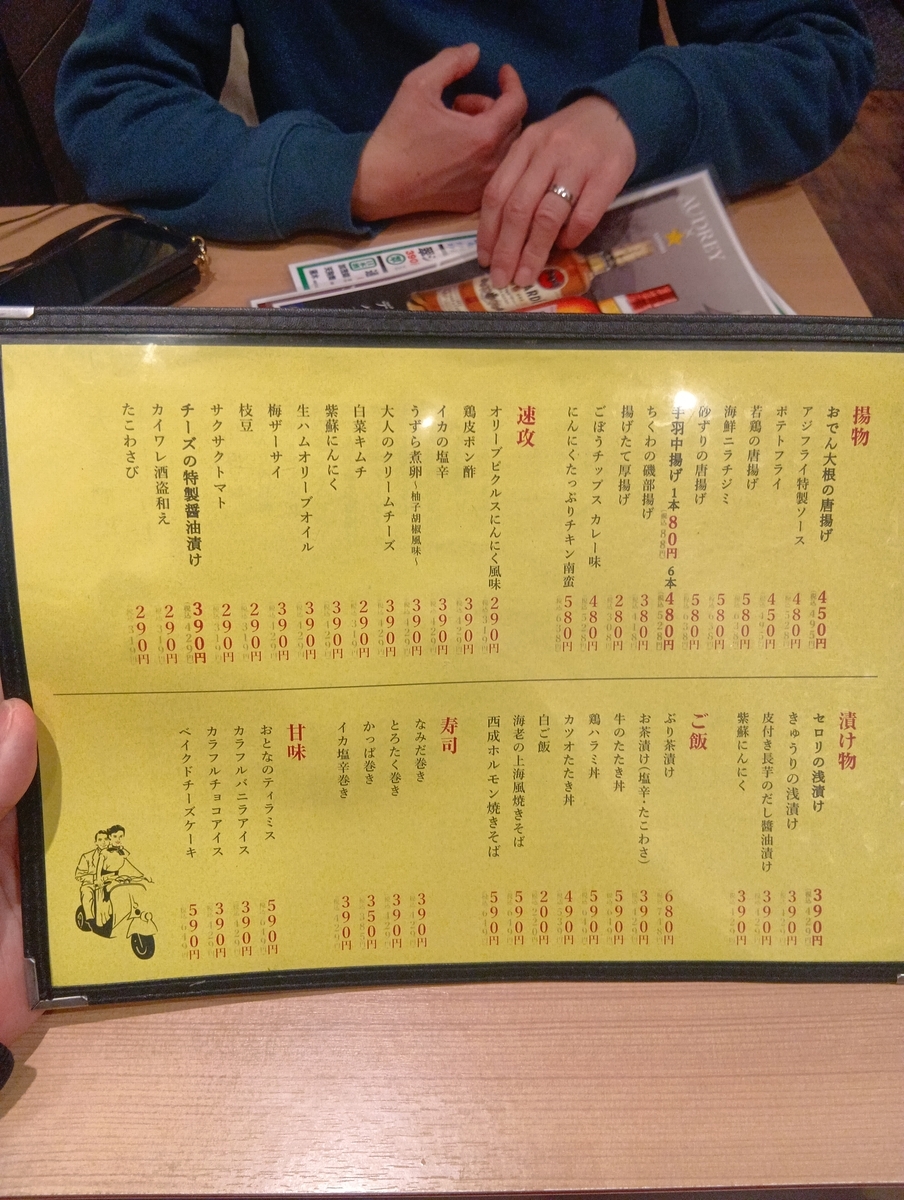 AUDREY
揚物
おでん大根の唐揚げ 450円
アジフライ特製ソース 480円
ポテトフライ 450円
若鶏の唐揚げ 580円
海鮮ニラチヂミ 580円
砂ずりの唐揚げ 580円
手羽中揚げ 1本 80円 税込88円 6本 480円
ちくわの磯部揚げ 380円
揚げたて厚揚げ 280円
ごぼうチップス カレー味 480円
にんにくたっぷりチキン南蛮 580円
速攻
オリーブピクルスにんにく風味 290円
鶏皮ポン酢 390円
イカの塩辛 390円
うずら煮卵~柚子胡椒風味~ 390円
大人のクリームチーズ 390円
白菜キムチ 290円
紫蘇にんにく 390円
生ハムオリーブオイル 390円
梅ザーサイ 390円
枝豆 290円
サクサクトマト 290円
チーズの特製醤油漬け 390円 税込429円
カイワレ酒盗和え 290円
たこわさび 290円
漬け物
セロリの浅漬け 390円
きゅうりの浅漬け 390円
皮付き長芋のだし醬油漬け 390円
紫蘇にんにく 390円
ご飯
ぶり茶漬け 680円
お茶漬け(塩辛・たこわさ) 390円
牛のたたき丼 590円
鶏ハラミ丼 590円
カツオたたき丼 490円
白ご飯 200円
海老の上海風焼きそば 590円
西成ホルモン焼きそば 590円
寿司
なみだ巻き 390円
とろたく巻き 390円
かっぱ巻き 350円
イカ塩辛巻き 390円
甘味
おとなのティラミス 590円
カラフルバニラアイス 390円
カラフルチョコアイス 390円
ベイクドチーズケーキ 590円